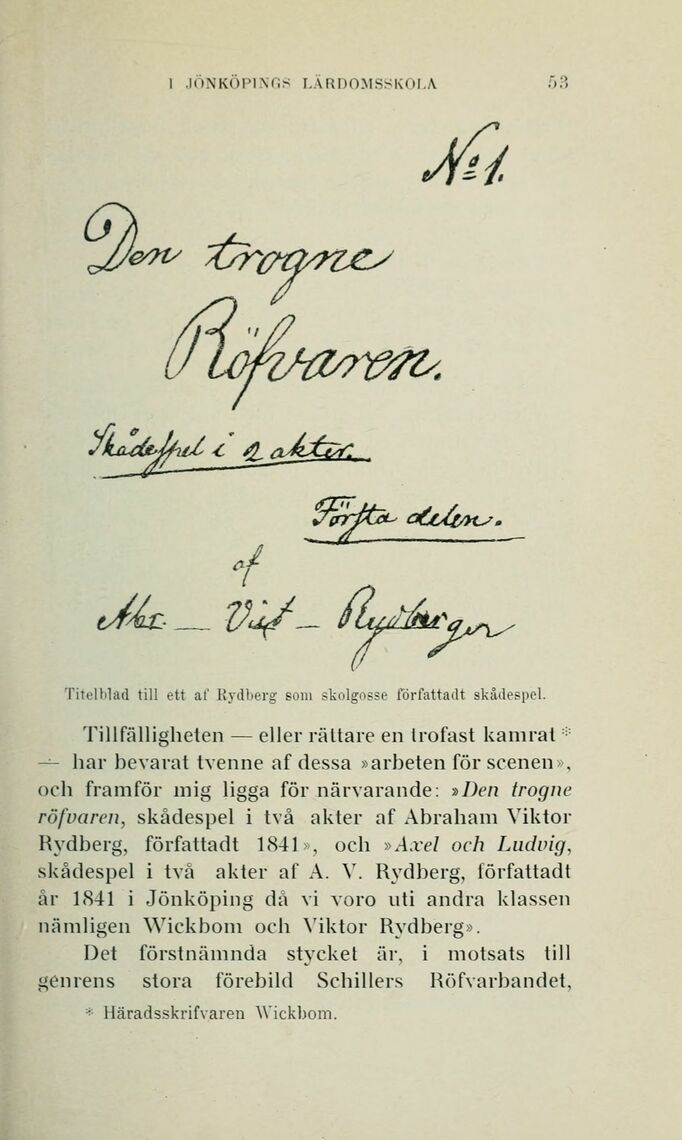 I JÖNKÖPINGS LÄRDOMSSKOLA 53
No 1.
Den trogne
Röfvaren.
Skådespel i 2 akter.
Första delen.
af
Abr. — Vict — Rydberger
Titelblad till ett af Rydberg som skolgosse författadt skådespel.
Tillfälligheten — eller rättare en trofast kamrat *
— har bevarat tvenne af dessa »arbeten för scenen»,
och framför mig ligga för närvarande: »Den trogne
röfvaren, skådespel i två akter af Abraham Viktor
Rydberg, författadt 1841», och »Axel och Ludvig,
skådespel i två akter af A. V. Rydberg, författadt
år 1841 i Jönköping då vi voro uti andra klassen
nämligen Wickbom och Viktor Rydberg».
Det förstnämnda stycket är, i motsats till
genrens stora förebild Schillers Röfvarbandet,
* Häradsskrifvaren Wickbom.